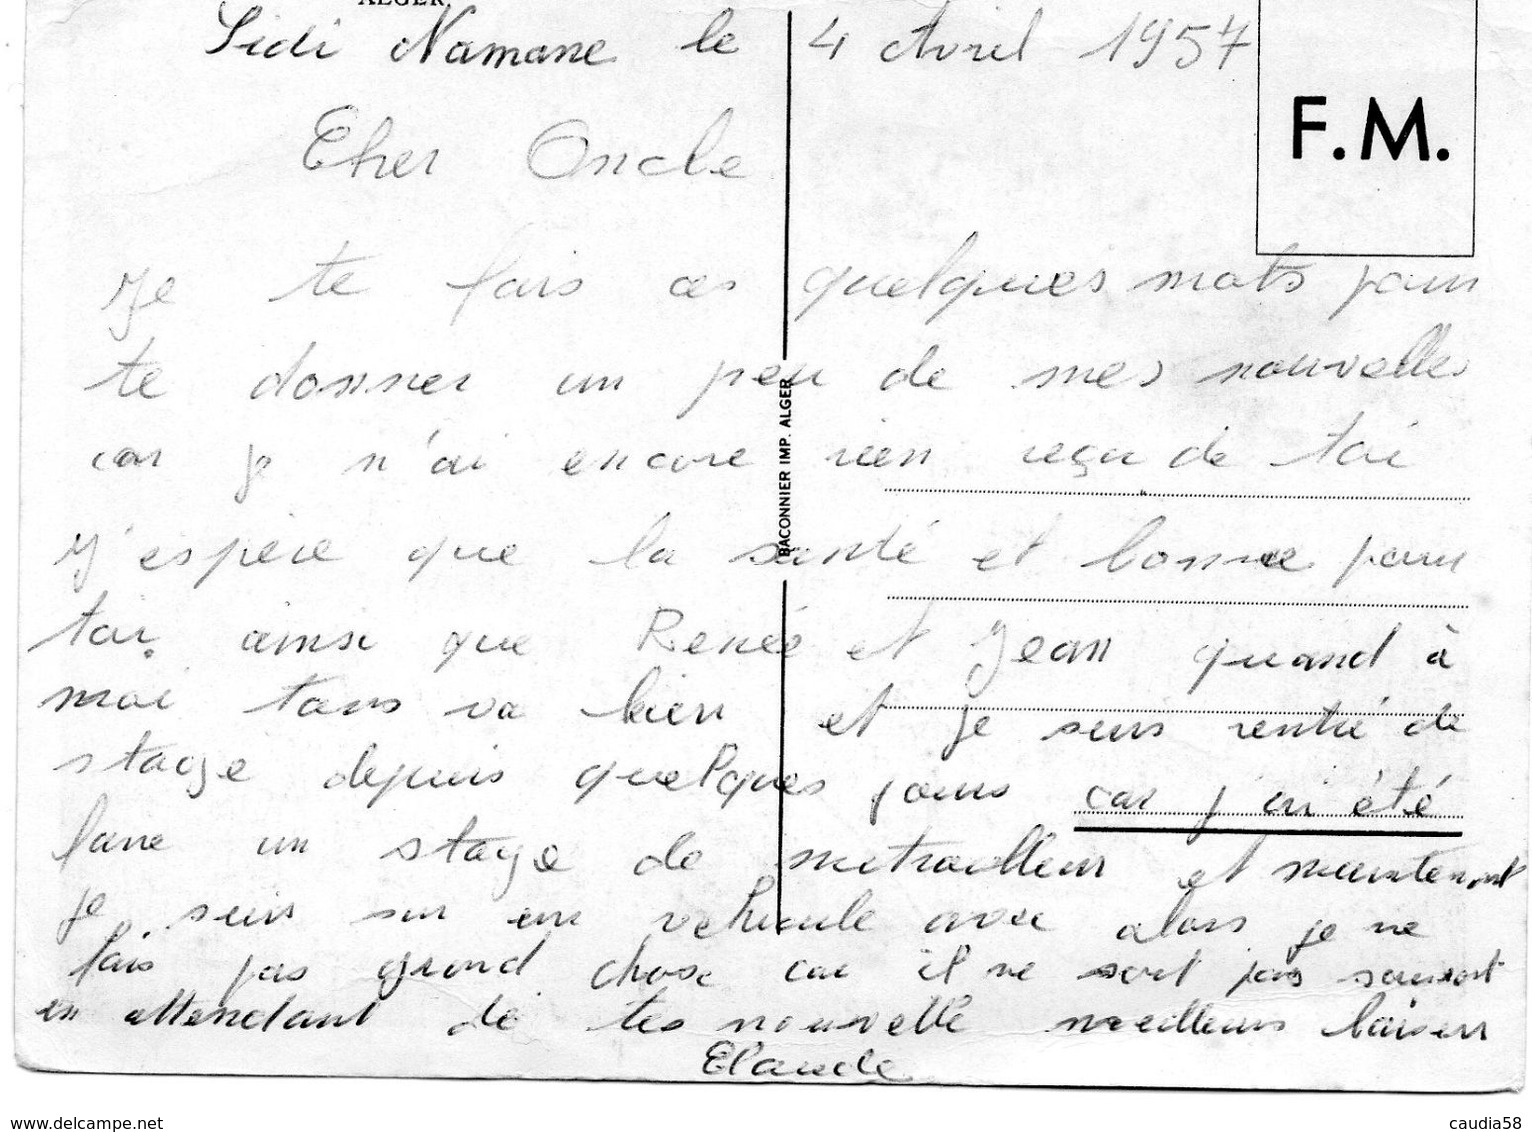 ALGER.
Sidi Namane le 4 Avril 1957
F.M.
Cher Oncle
Je te fais ces quelques mots pour
te donner un peu de mes nouvelles
car je n'ai encore rien reçu de toi
J'espère que la santé et bonne pour
toi. ainsi que Renée et Jean quand à
moi tous va bien et je suis rentré de
stage depuis quelques jours car j'ai été
faire un stage de mitrailleur et maintenant
je suis sur un vehicule avec alors je ne
fais pas grand chose car il ne sort pas souvent
en attendant de tes nouvelle meilleurs baisers
Claude
BACONNIER IMP. ALGER
www.delcampe.net
caudia58